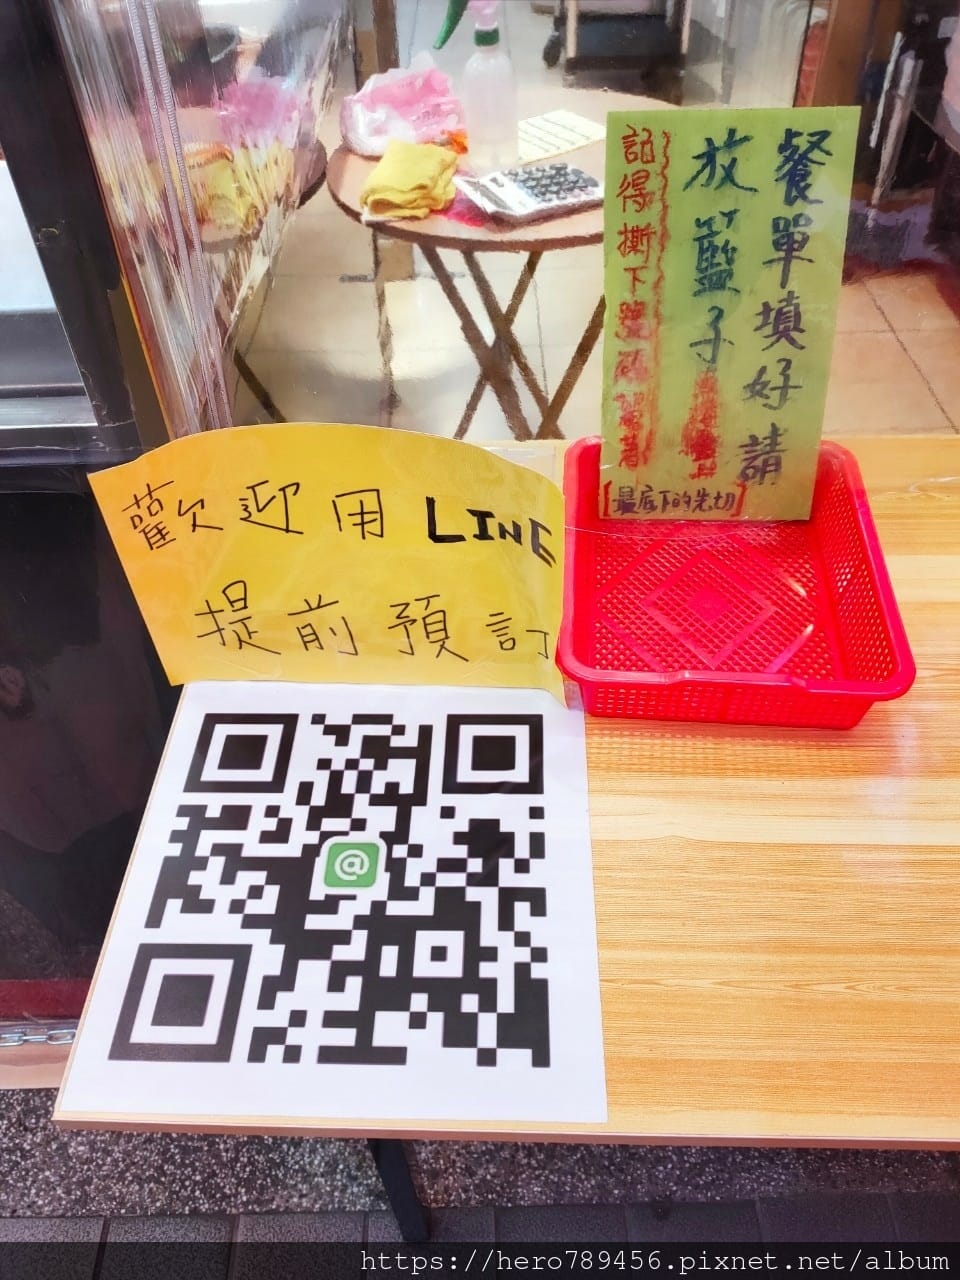 餐單填好請
放籃子
記得撕下號碼單著
【最底下的先切】
歡迎用LINE
提前預訂
@
https://hero789456.pixnet.net/album